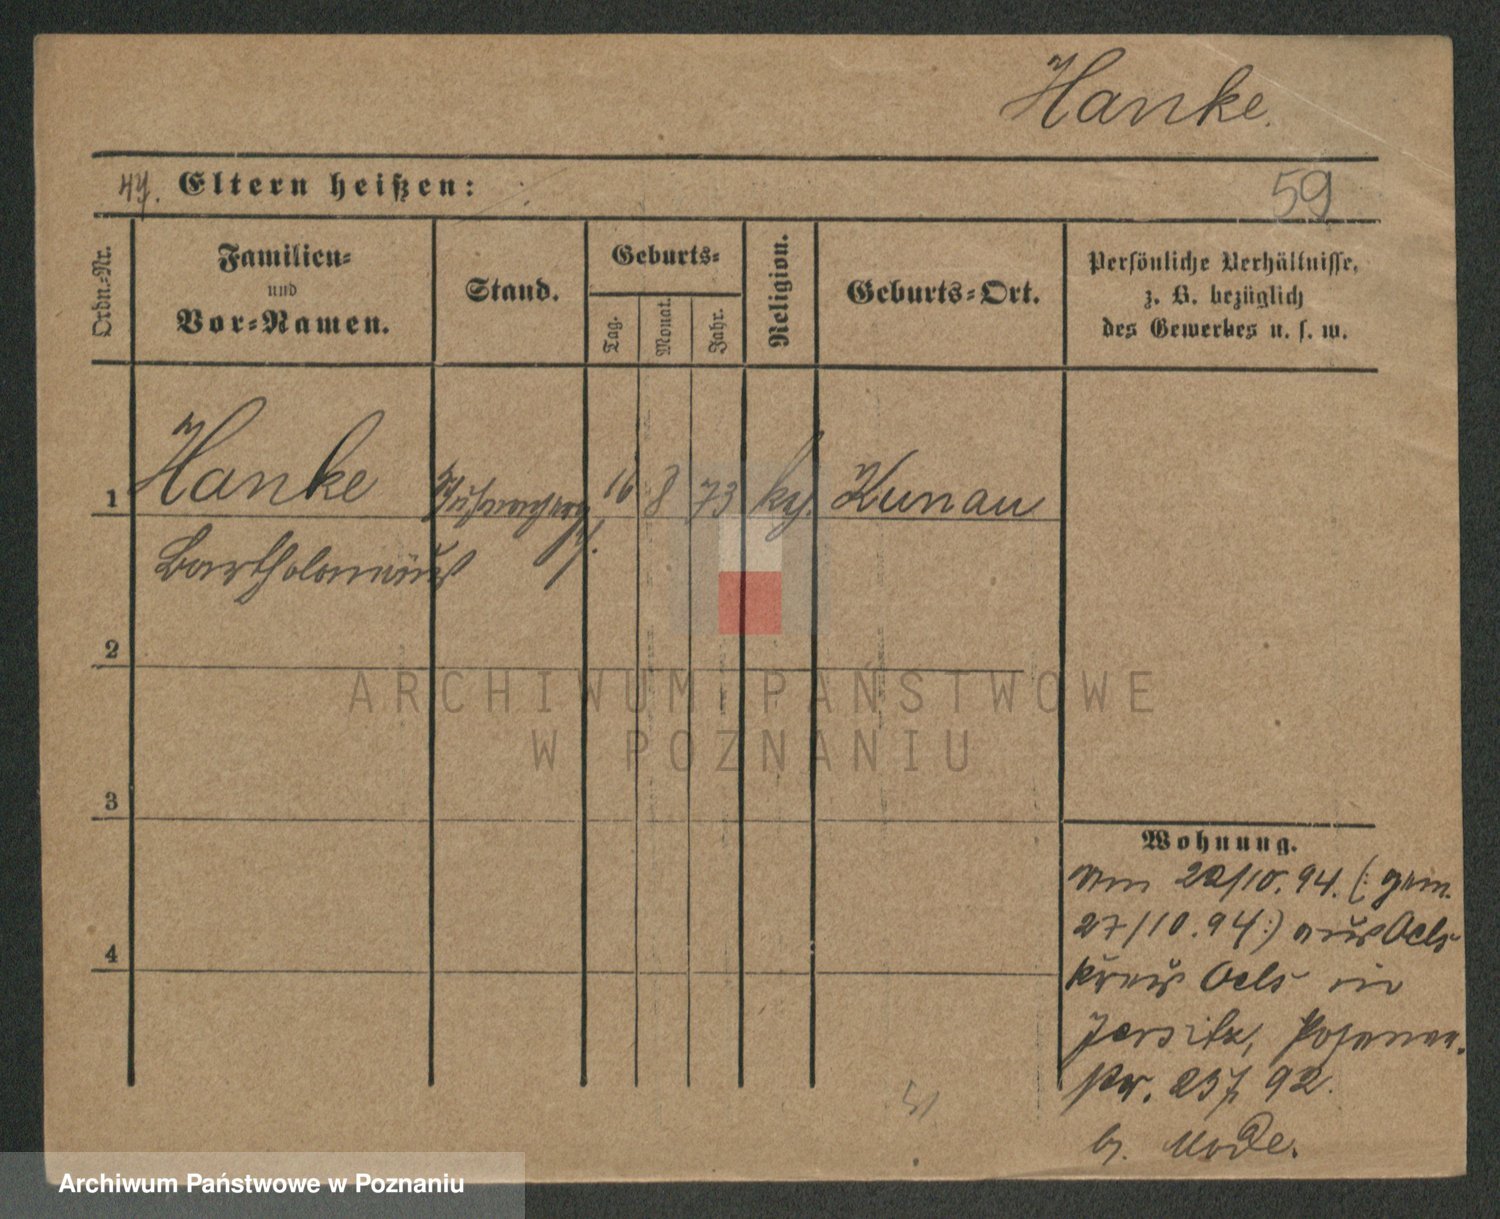 Hanke.
Eltern heißen:
59
Ordn.-Nr.
Familien-
und
Vor-Namen.
Stand.
Geburts-
Tag.
Monat.
Jahr.
Religion.
Geburts-Ort.
Persönliche Verhältnisse,
z. B. bezüglich
des Gewerbes u. s. w.
1 Hanke 16 8 73 Kunau
Bartholomäus
2
3
4
ARCHIWUM PAŃSTWOWE
W POZNANIU
Wohnung.
Am 22/10. 94. (: gem.
27/10. 94 :) aus Oels
Kreis Oels in
Jersitz, Posener-
92.
b. Mode.
Archiwum Państwowe w Poznaniu